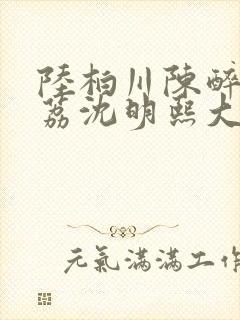 陸柏川陳醉
荔沈明熙大
元氣滿滿工作